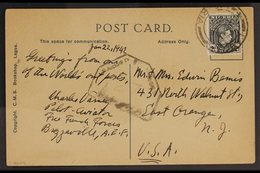 POST CARD.
This space for communication.
Address Only.
Jan 22, 1942
Greetings from one
of the World's outposts,
Charles Vane
Pilot-Aviator
Free French Forces
Brazzaville, A.E.F.
Mr + Mrs. Edwin Bemis
431 North Walnut St.,
East Orange,
N. J.
U.S.A.
Copyright. C.M.S. Bookshop, Lagos.